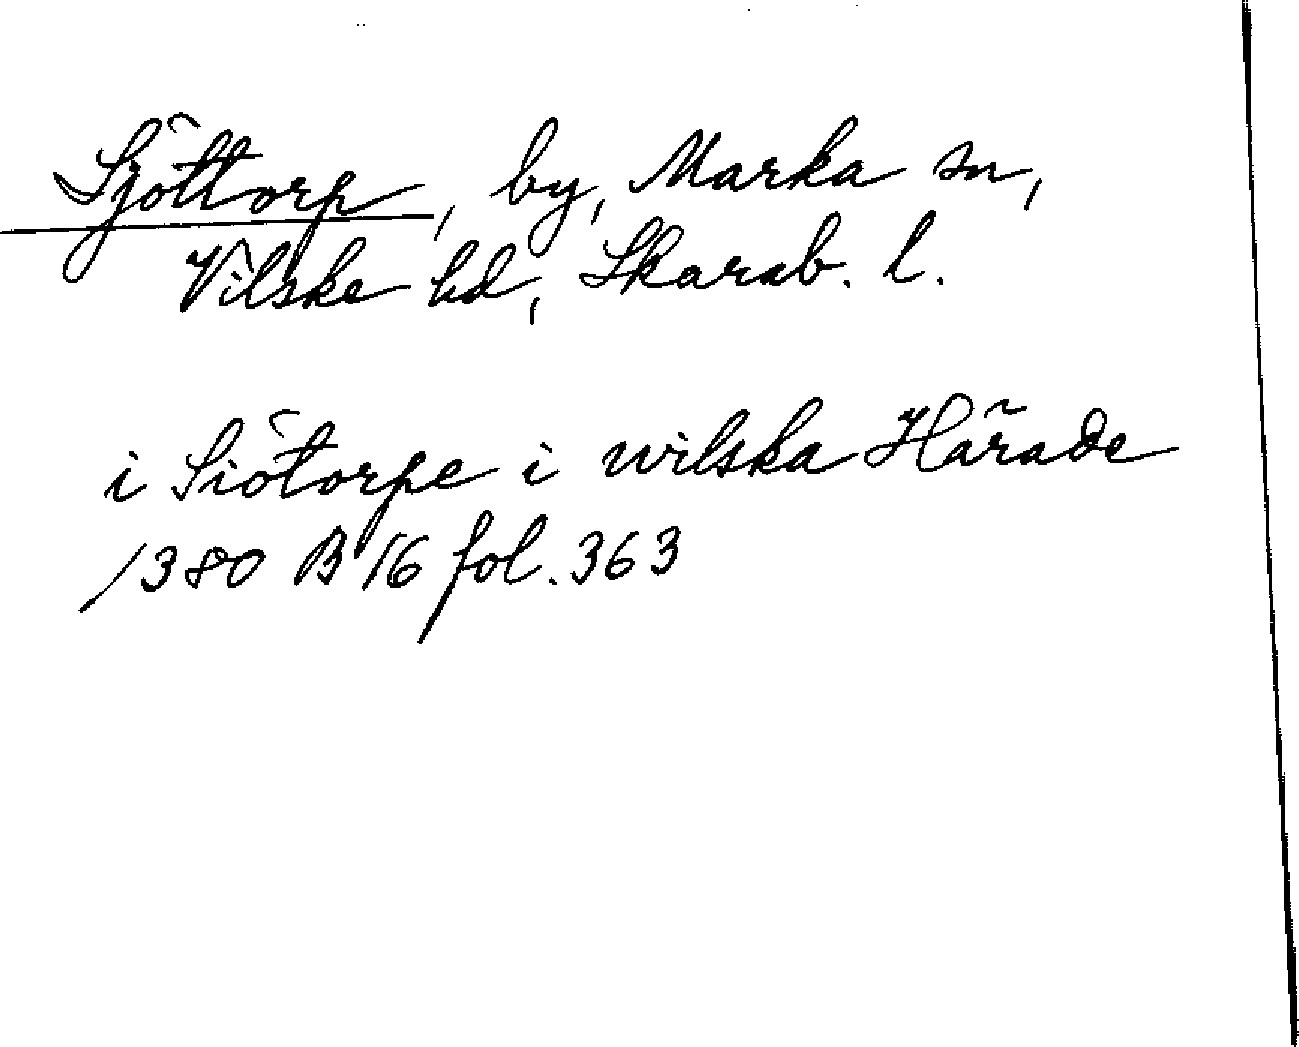 Sjöttorp, by, Marka sn,
Vilske hd, Skarab. l.
i Siötorpe i wilska Härade
1380 B 16 fol. 363